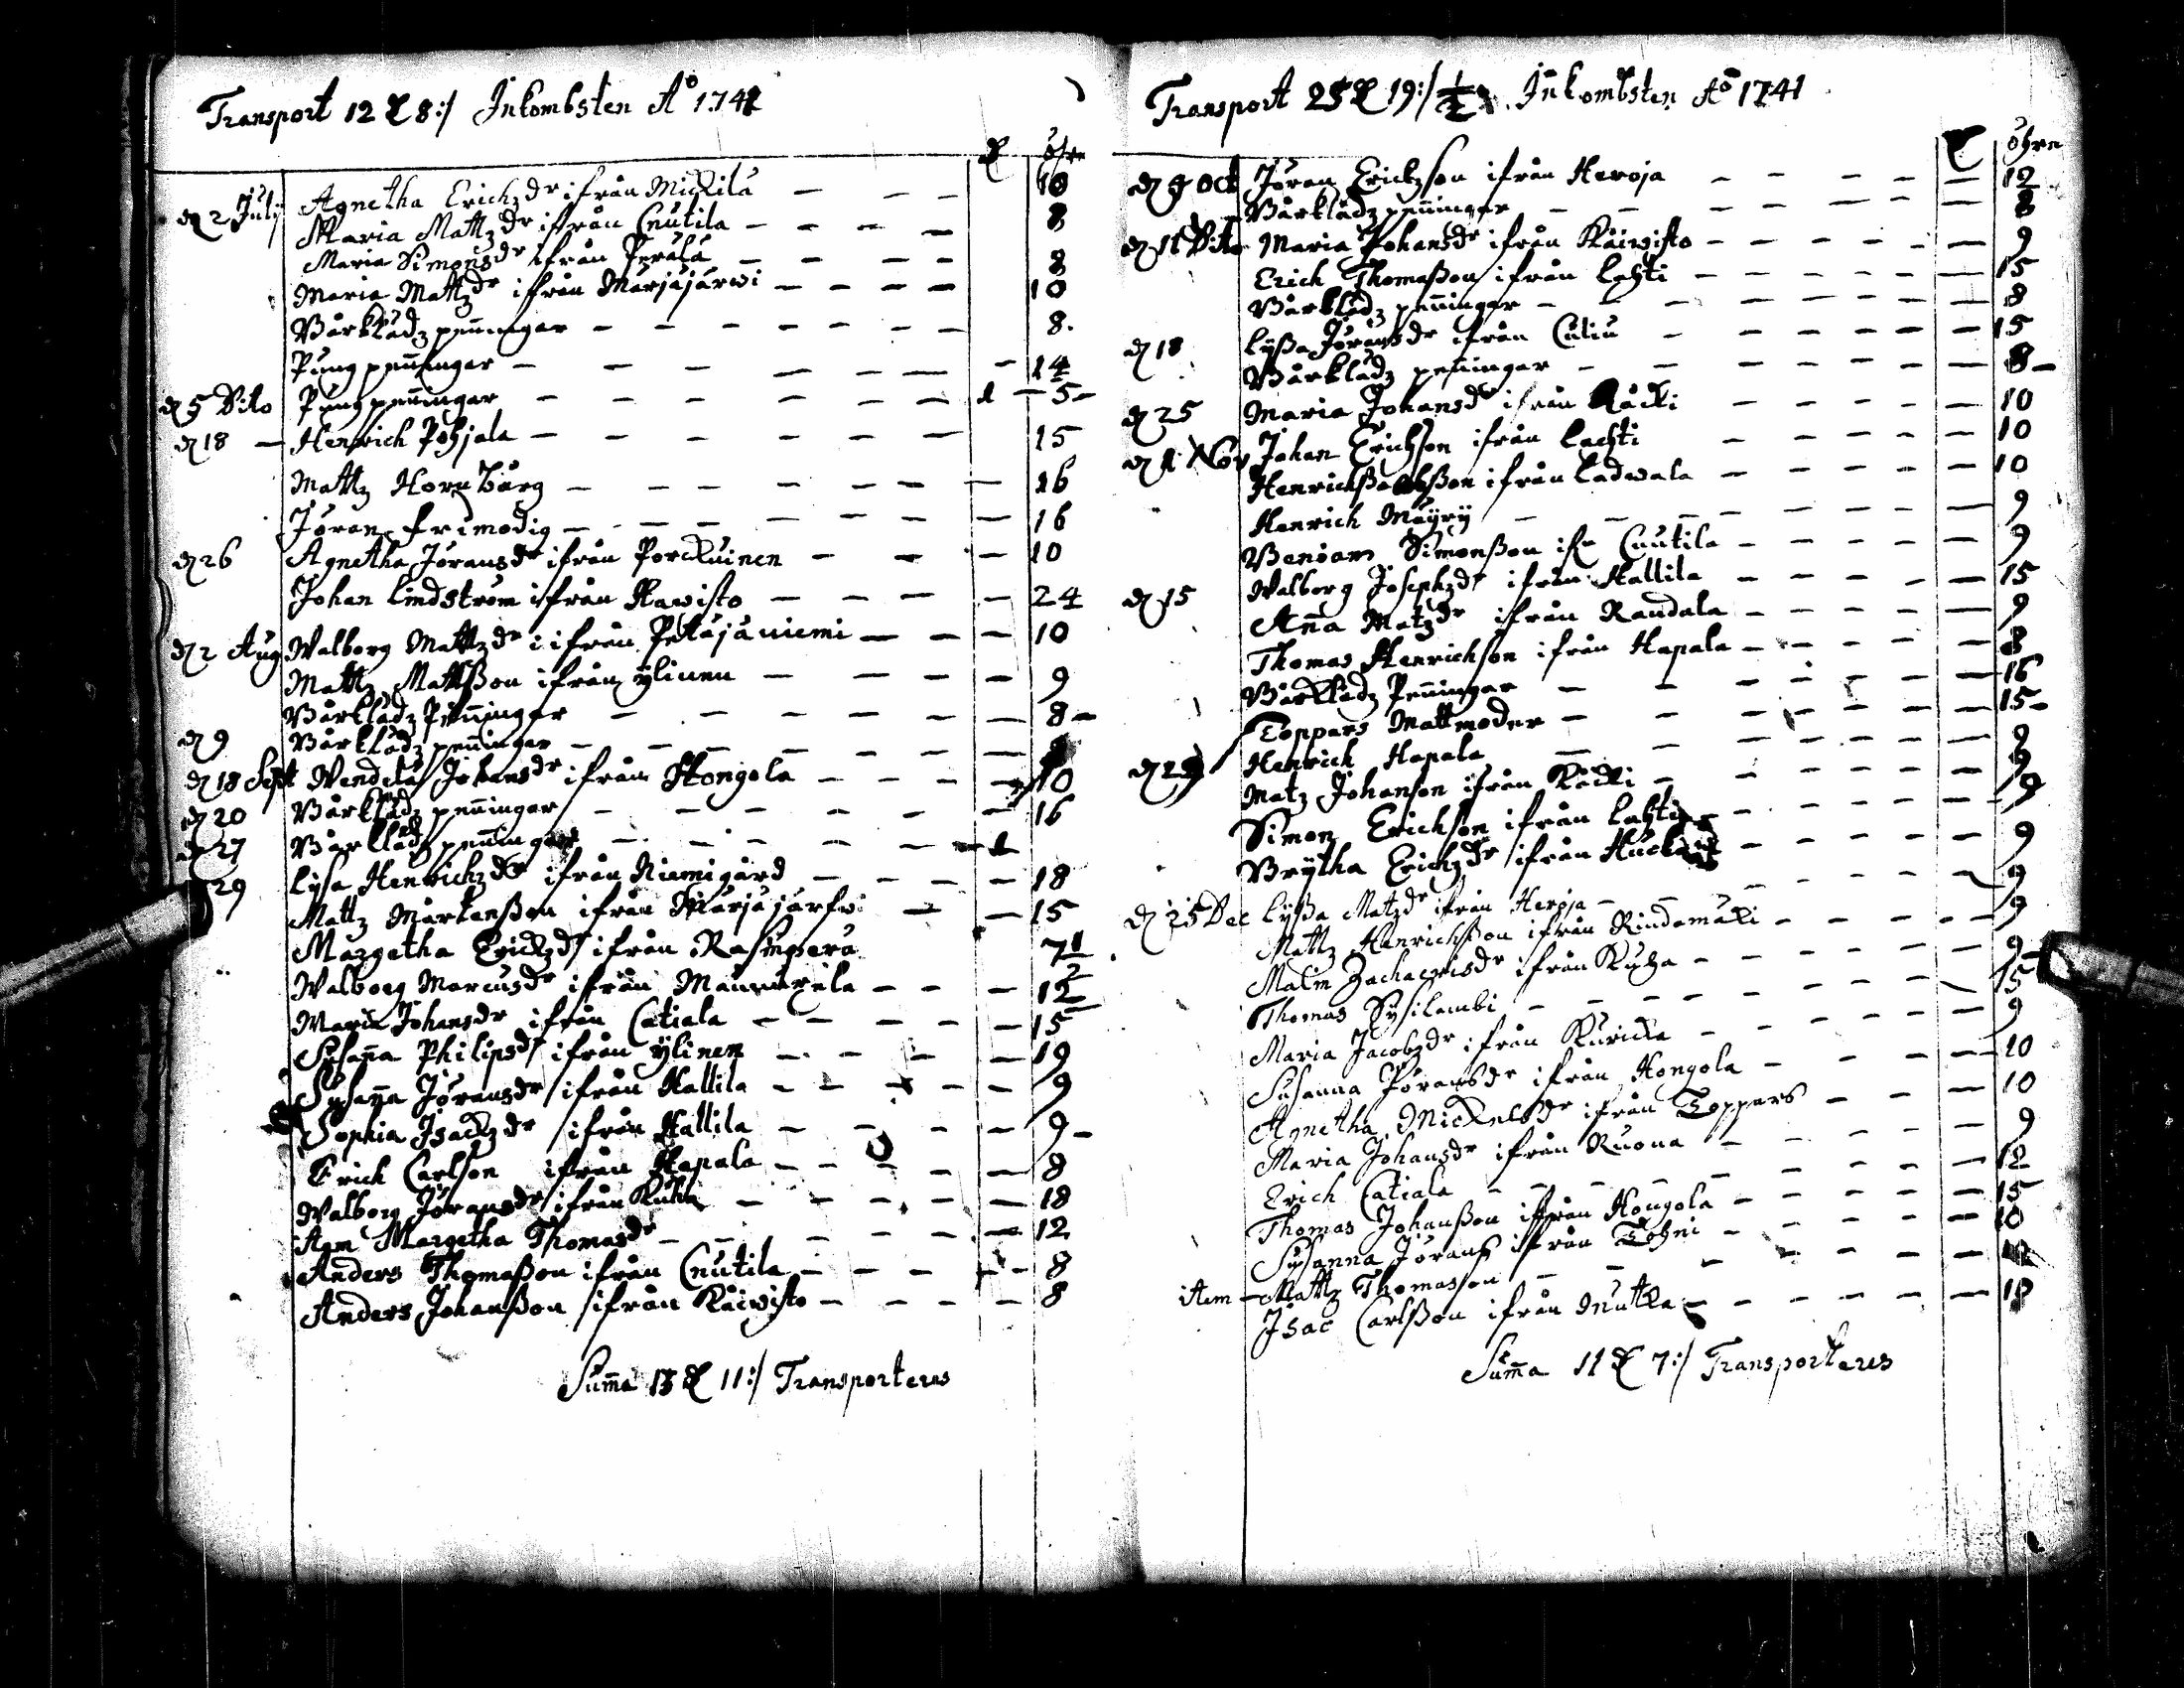 Transport 12 D 8:/ Inkombsten Ao 1741
D öhre
d 2 Julij Agnetha Erichzdr ifrån Mickilä — — — 10
Maria Mattzdr ifrån Cnutila — — — — 8
Maria Simonsdr ifrån Perälä — — — — 8
Maria Mattzdr ifrån Marjajärwi — — — — 10
Bårklädz penningar — — — — — — — 8.
Pung penningar — — — — — — — 14
d 5 Dito Pung penningar — — — — — — 1 — 5 —
d 18 — Henrich Pohjala — — — — — — 15
Mattz Hornborg — — — — — — — 16
Jöran frimodig — — — — — — — 16
d 26 Agnetha Jöransdr ifrån Porckuinen — — — 10
Johan Lindström ifrån Hawisto — — — — 24
d 2 Aug Walborg Mattzdr ifrån Petäjäniemi — — — 10
Mattz Mattsson ifrån ylinen — — — — 9
Bårklädz Penningar — — — — — — 8 —
d 9 Bårklädz penningar — — — — — — —
d 18 Sept Wendela Johansdr ifrån Hongola — — — — 10
d 20 Bårklädz penningar — — — — — — 16
d 27 Bårklädz penningar — — — — — — 1
29 Lysa Henrichzdr ifrån Niemigård — — — — 18
Mattz Mårtensson ifrån Marjajärfwi — — 15
Margetha Erichzdr ifrån Rasinperä 7 1/2
Walborg Marcusdr ifrån Mannarela — — — 12
Maria Johansdr ifrån Catiala — — — — — 15
Susanna Philipsdr ifrån ylinen — — — — 19
Susanna Jöransdr ifrån Hallila — — — — — 9
Sophia Isackzdr ifrån Hallila — — — — 9 —
Erich Carlson ifrån Hapala — — — — — 8
Walborg Jöransdr ifrån Kuha — — — — — 18
Item Margetha Thomasdr — — — — — — 12
Anders Thomasson ifrån Cnutila — — — — — 8
Anders Johansson ifrån Käiwisto — — — — — 8
Summa 13 D 11:/ Transporteres
Transport 25 D 19:/ 1/2 Inkombsten Ao 1741
D öhre
d 9 Oct Jöran Erickzson ifrån Heroja — — — — — 12
Bårklädz penningar — — — — — — — 8
d 11 Dito Maria Johansdr ifrån Käiwisto — — — — — — 9
Erich Thomasson ifrån Lahti — — — — — — 15
Bårklädz penningar — — — — — — — 8
d 18 Lyssa Jöransdr ifrån — — — — — — 15
Bårklädz penningar — — — — — — — 8 —
d 25 Maria Johansdr ifrån Käcki — — — — — 10
d 1 Nov Johan Erichson ifrån Lachti — — — — — 10
ifrån Ladwala — — — — — 10
Henrich Mäyry — — — — — — — 9
Simonsson ifr Cnutila — — — — — 9
d 15 Walborg Josephzdr ifrån Hallila — — — — — 15
Anna Matzdr ifrån Randala — — — — — 9
Thomas Henrichson ifrån Hapala — — — — — 8
Bårklädz Penningar — — — — — — 16
Toppars Mattmoder — — — — — — — 15 —
d 29 Henrich Hapala — — — — — — 9
Matz Johanson ifrån Käcki — — — — — — 9
Simon Erichson ifrån Lahti — — — — — 9
Brytha Erichzdr ifrån — — — — — 9
d 25 Dec Lyssa Matzdr ifrån Heroja — — — — — — 9
Mattz Henrichsson ifrån Rindamäki — — — — — 9
Malin Zachaerisdr ifrån Kuha — — — — — — 9
Thomas Sysilambi — — — — — — — 15
Maria Jacobzdr ifrån Kuricka — — — — — 9
Susanna Jöransdr ifrån Hongola — — — — — 10
Agnetha Mickelsdr ifrån Toppars — — — — 10
Maria Johansdr ifrån Ruona — — — — — 9
Erich Catiala — — — — — — — 12
Thomas Johansson ifrån Hongola — — — — — 15
Susanna Jörans ifrån Tohni — — — — — 10
item — Mattz Thomasson — — — — — —
Isac Carlsson ifrån Mutka — — — — — — 10
Summa 11 D 7:/ Transporteres